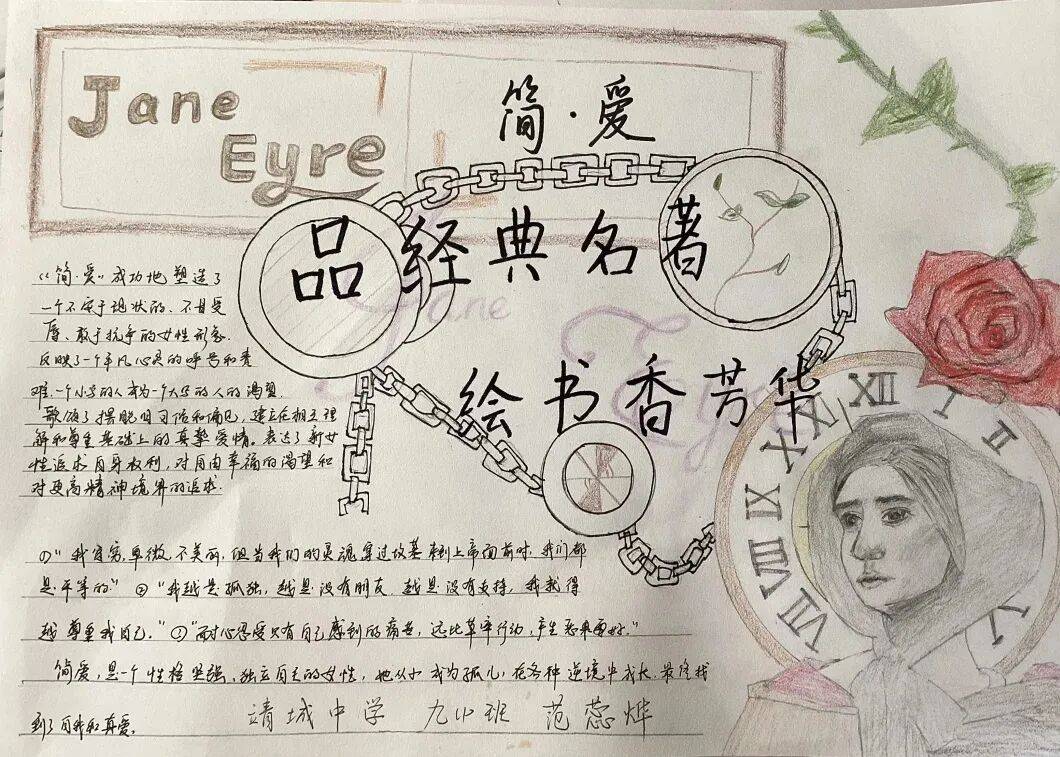 Jane
Eyre
简·爱
品经典名著
Jane
绘书香芳华
《简·爱》成功地塑造了
一个不安于现状的、不甘受
辱、敢于抗争的女性形象.
反映了一个平凡心灵的呼号和责
难.一个小写的人成为一个大写的人的渴望.
歌颂了摆脱旧习俗和偏见,建立在相互理
解和尊重基础上的真挚爱情。表达了新女
性追求自身权利,对自由幸福的渴望和
对更高精神境界的追求.
①"我贫穷,卑微,不美丽,但当我们的灵魂穿过坟墓来到上帝面前时,我们都
是平等的" ②"我越是孤独,越是没有朋友 越是没有支持,我就得
越尊重我自己." "耐心忍受只有自己感到的痛苦,远比草率行动,产生恶果要好."
简爱,是一个性格坚强、独立自主的女性,她从小成为孤儿,在各种逆境中成长.最终找
到了自我和真爱。
靖城中学 九小班 范蕊烨
XII
I
II
XI
X
IX
VIII
VII
VI